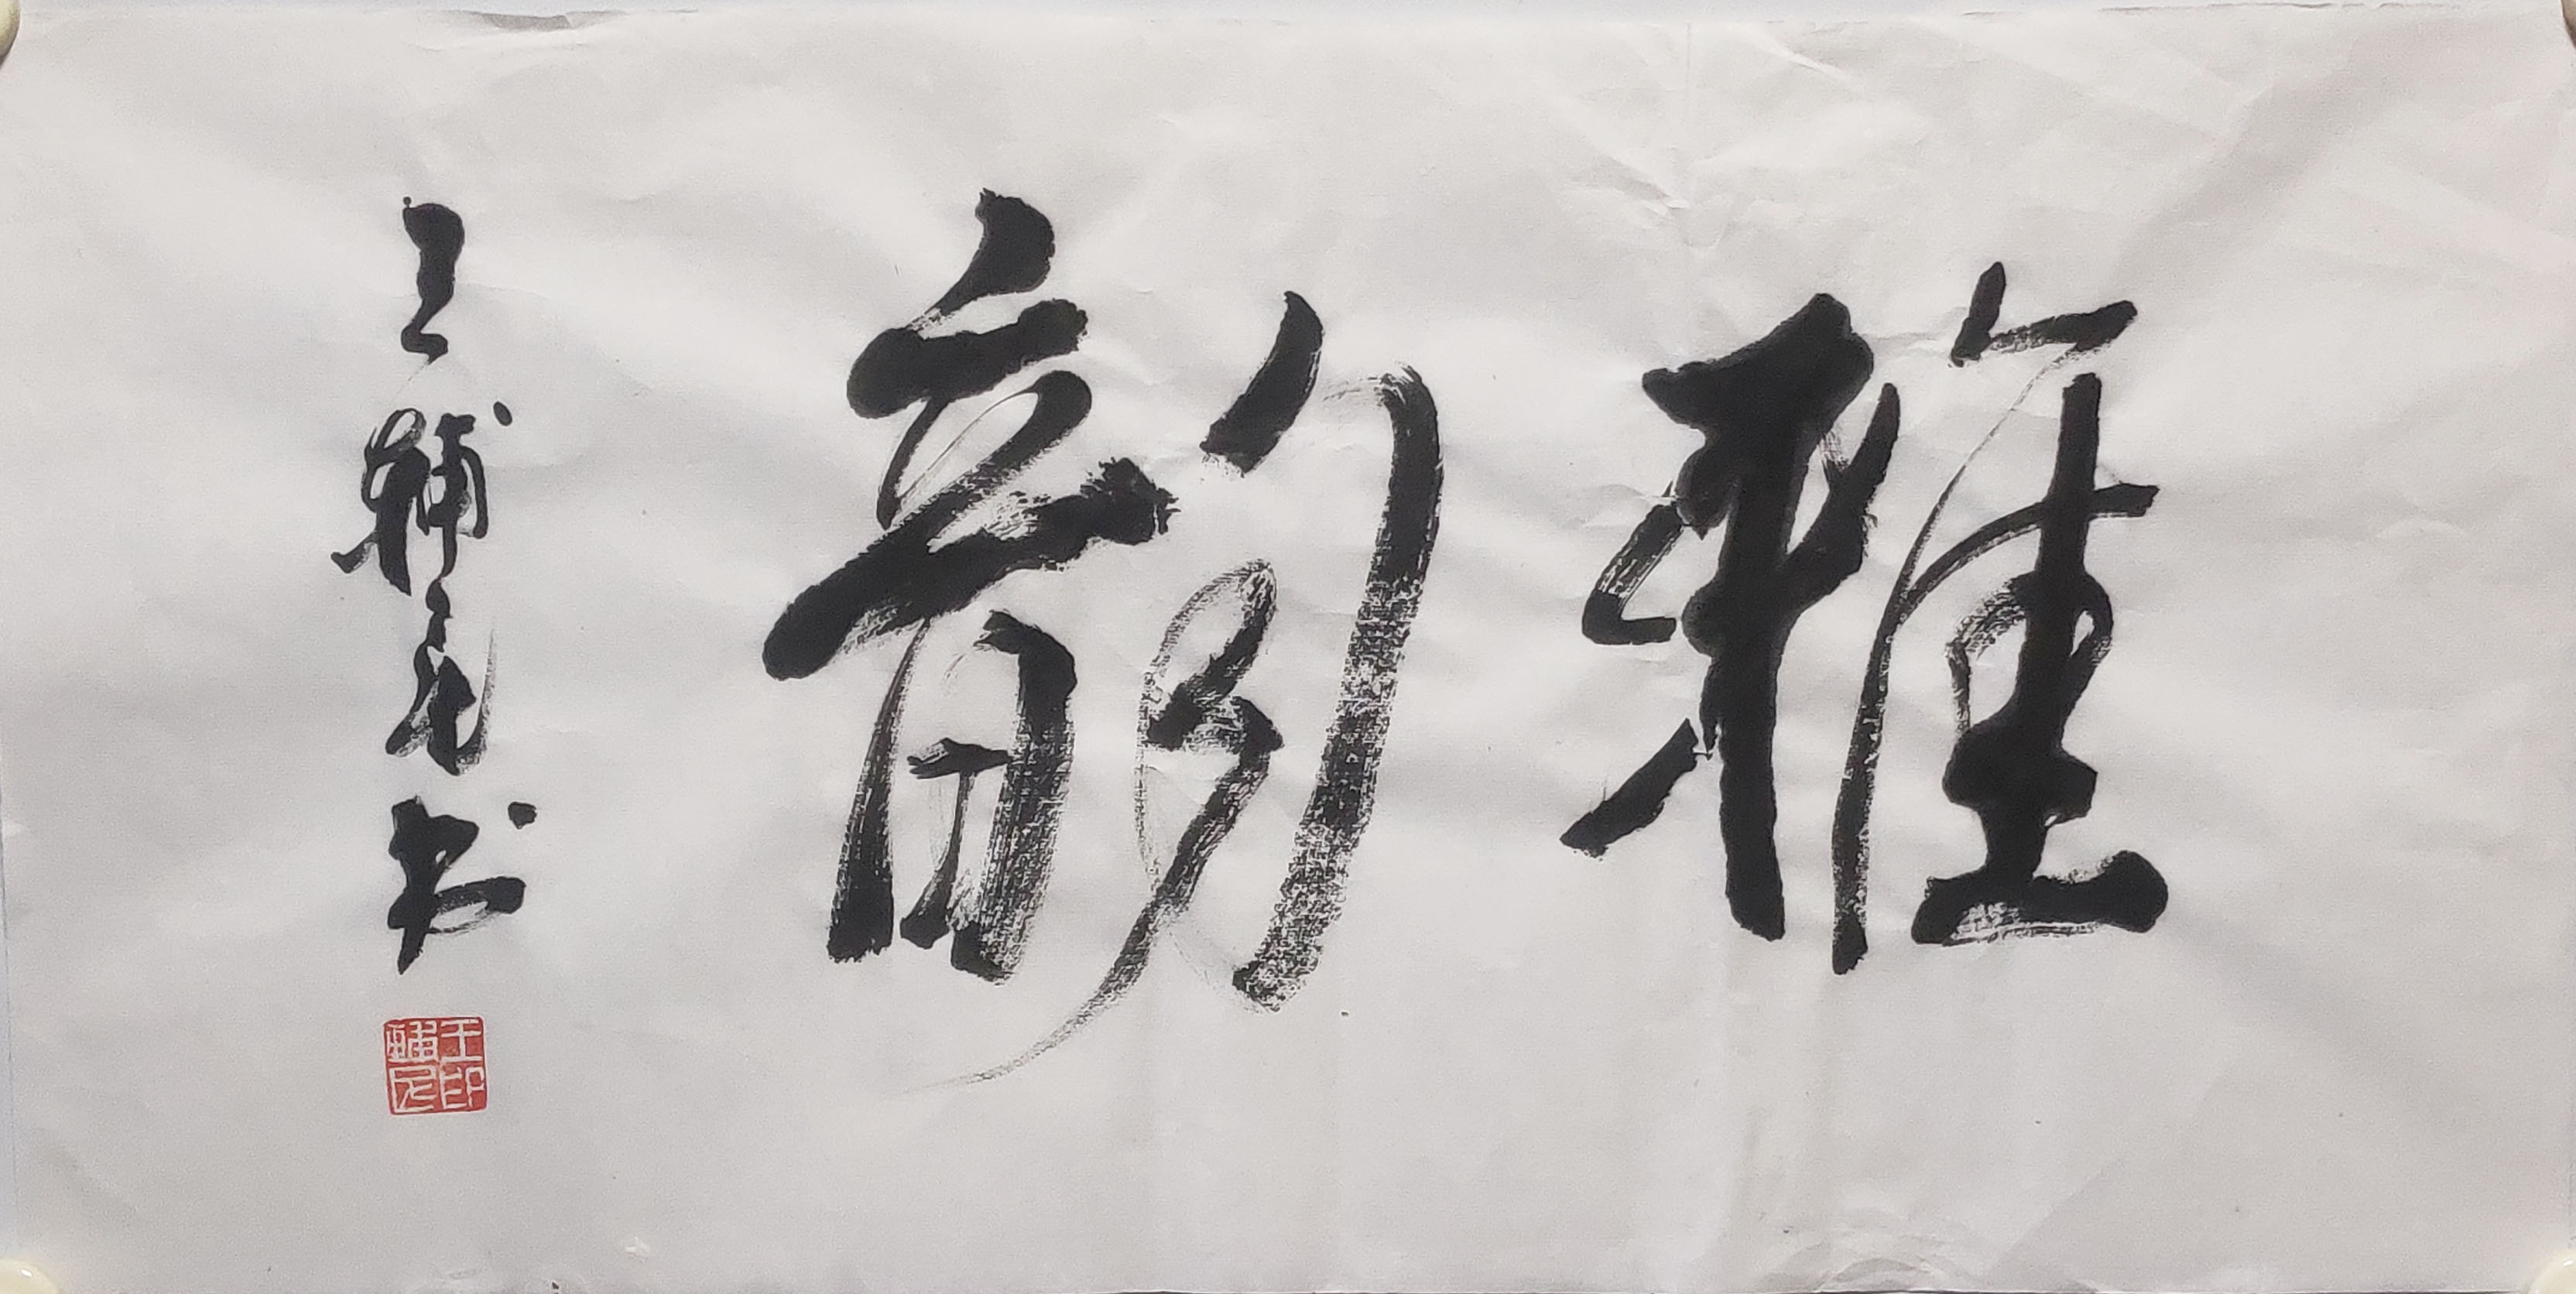 雅韵
王辅元书
王印
辅元